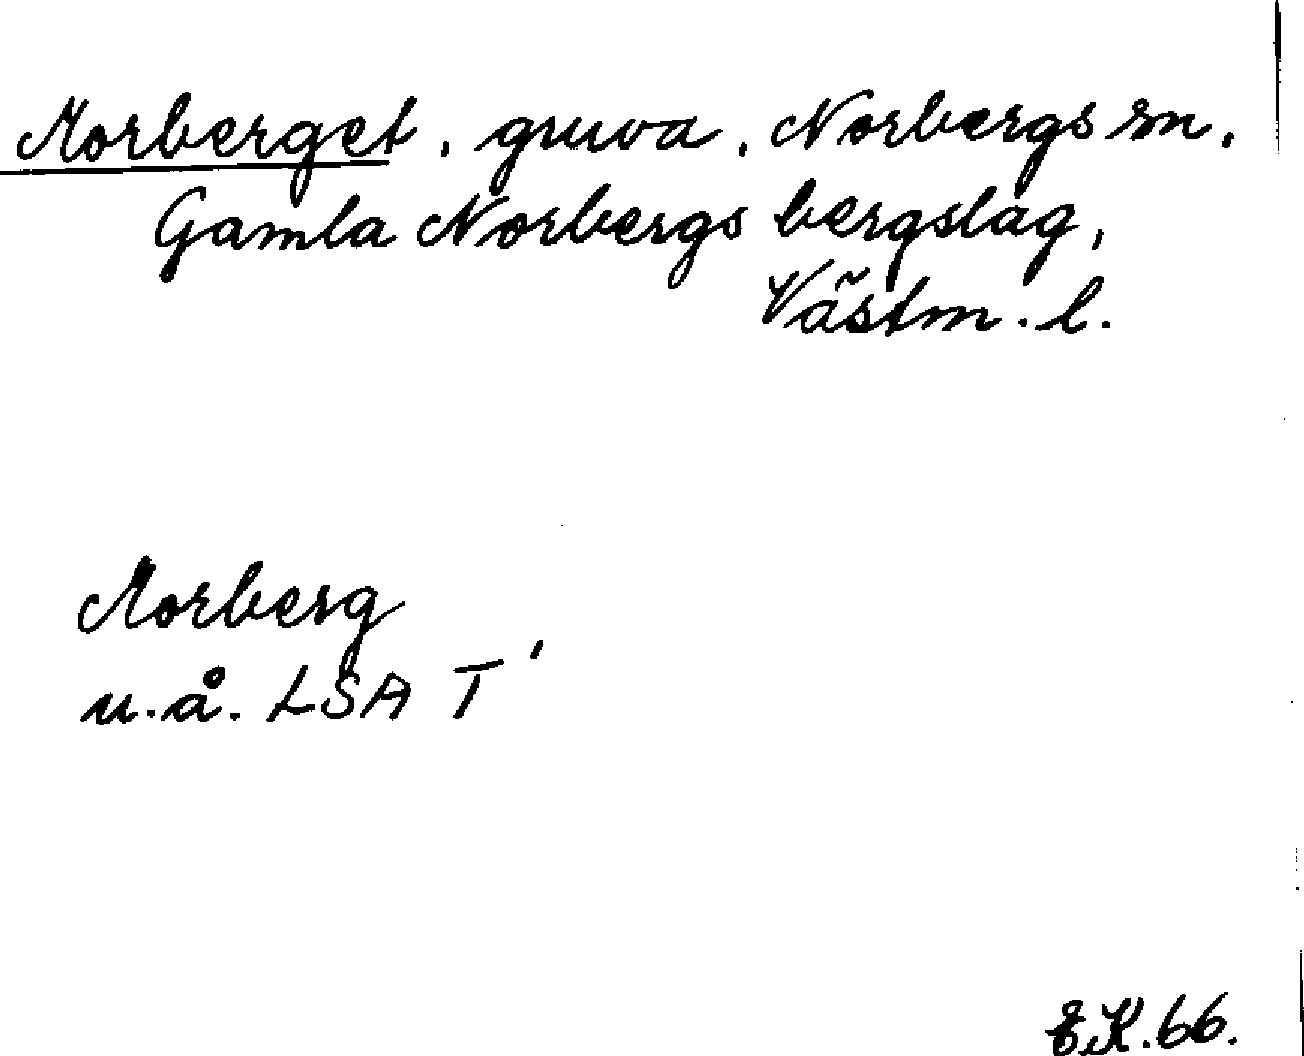 Morberget, gruva, Norbergs sn,
Gamla Norbergs bergslag,
Västm. l.
Morberg
u.å. LSA T'
E.K. 66.